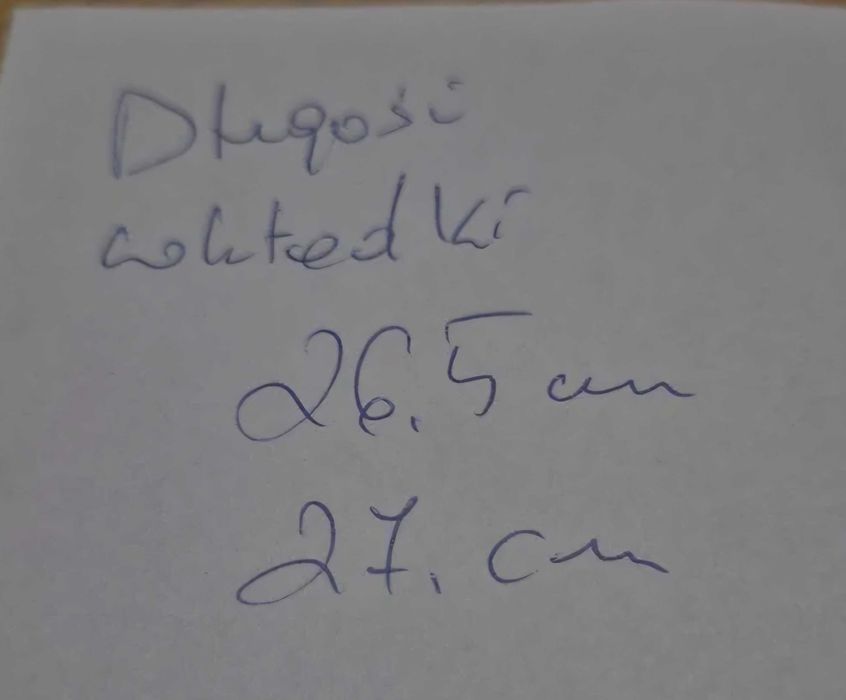 Długość
wkładki
26.5 cm
27. cm